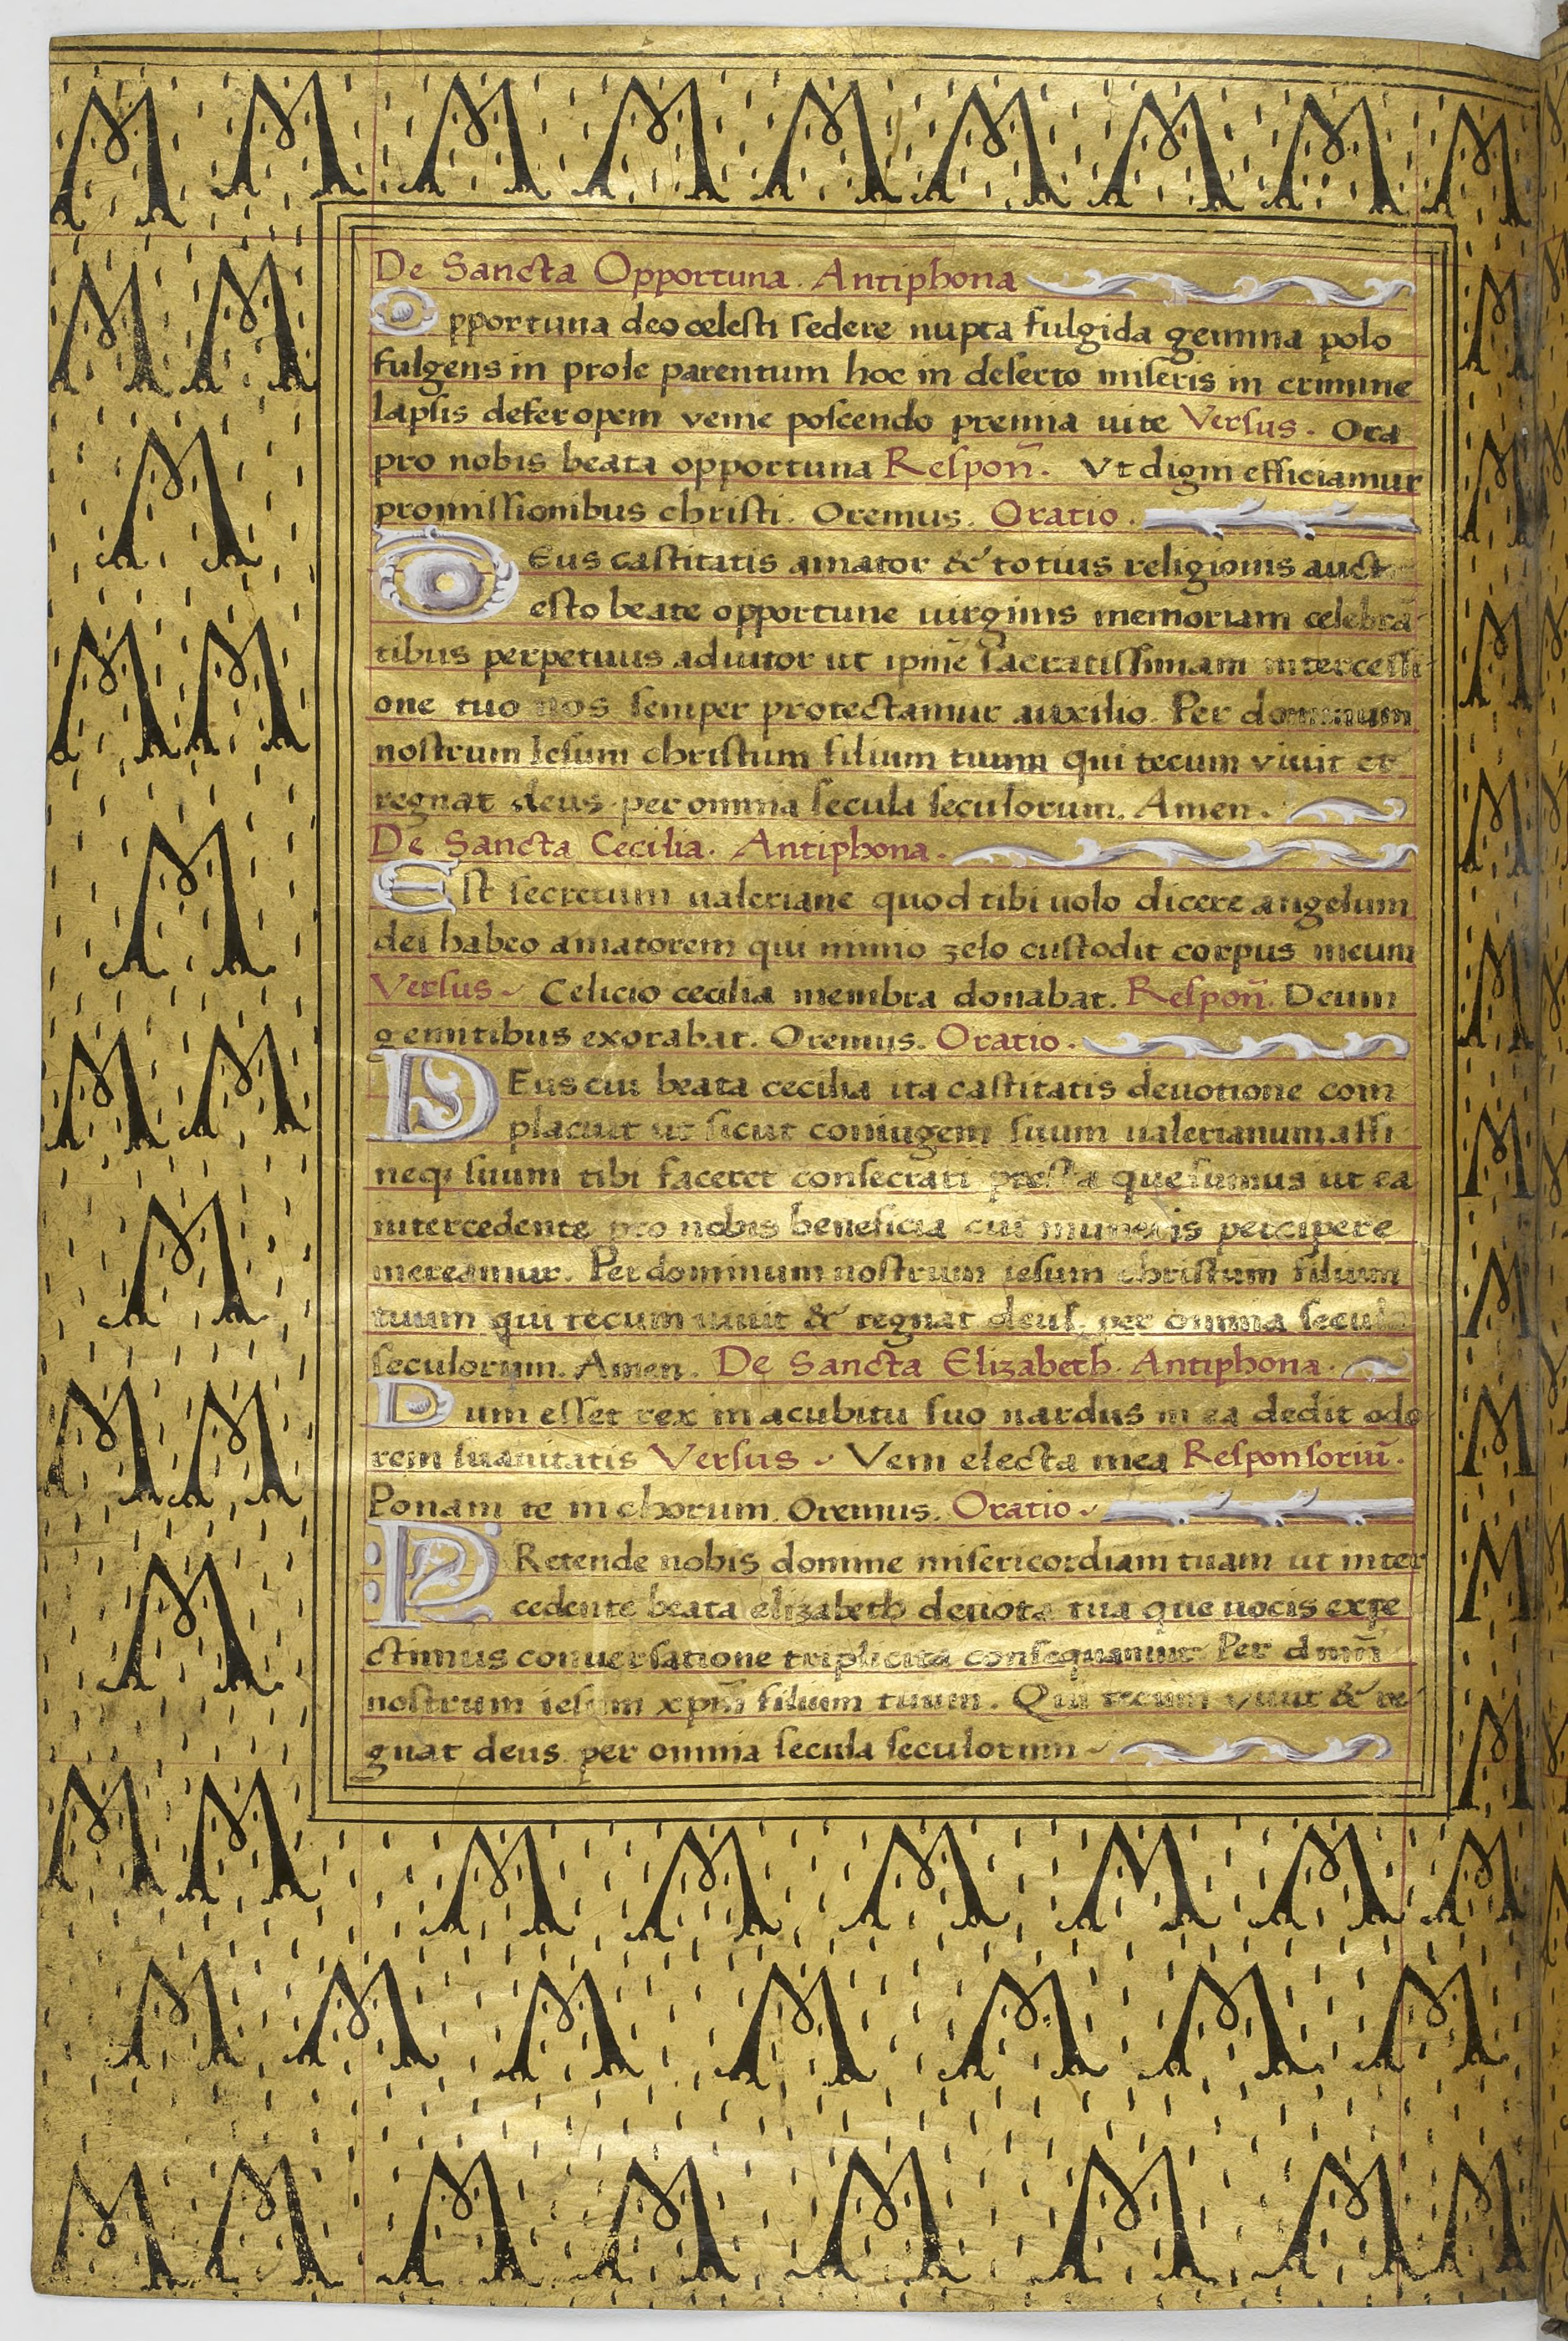 De Sancta Opportuna. Antiphona
Opportuna deo celesti sedere nupta fulgida gemma polo
fulgens in prole parentum hoc in deserto miseris in crimine
lapsis defer opem veme poscendo premia uite Versus. Ora
pro nobis beata opportuna Respoñ. Vt digni efficiamur
promissionibus christi. Oremus. Oratio.
DEus castitatis amator & totius religionis auct
esto beate opportune uirginis memoriam celebrā
tibus perpetuus adiutor ut sacratissimam intercessi
one tuo nos semper protectamur auxilio. Per dominum
nostrum Iesum christum filium tuum qui tecum viuit et
regnat deus per omnia secula seculorum. Amen.
De Sancta Cecilia. Antiphona.
Est secretum ualeriane quod tibi uolo dicere angelum
dei habeo amatorem qui nimio zelo custodit corpus meum
Versus Celicio cecilia membra donabat. Respoñ. Deum
gemitibus exorabat. Oremus. Oratio.
DEus cui beata cecilia ita castitatis deuotione com
placuit ut sicut coniugem suum ualerianum affi
neq; suum tibi faceret consecrati presta quesumus ut ea
intercedente pro nobis beneficia cui muneris percipere
mereamur. Per dominum nostrum iesum christum filium
tuum qui tecum uiuit & regnat deus. per omnia secula
seculorum. Amen. De Sancta Elizabeth. Antiphona.
Dum esset rex in acubitu suo nardus in ea dedit odo
rem suauitatis Versus Veni electa mea Responsoriū.
Ponam te in chorum. Oremus. Oratio
PRetende nobis domine misericordiam tuam ut inter
cedente beata elizabeth deuota tua que uocis expe
ctimus conuersatione triplicita consequamur Per dmñ
nostrum iesum xpm̄ filium tuum. Qui tecum viuit & re
gnat deus per omnia secula seculorum